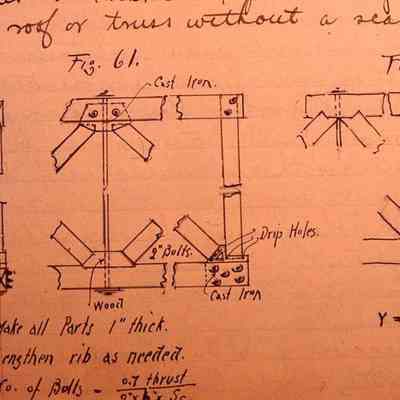 roof or truss without a sea
Fig. 61.
F
Cast Iron.
Drip Holes.
2" Bolts.
Cast Iron
Wood
Make all Parts 1" thick.
engthen rib as needed.
Y =
No. of Bolts = 0.7 thrust